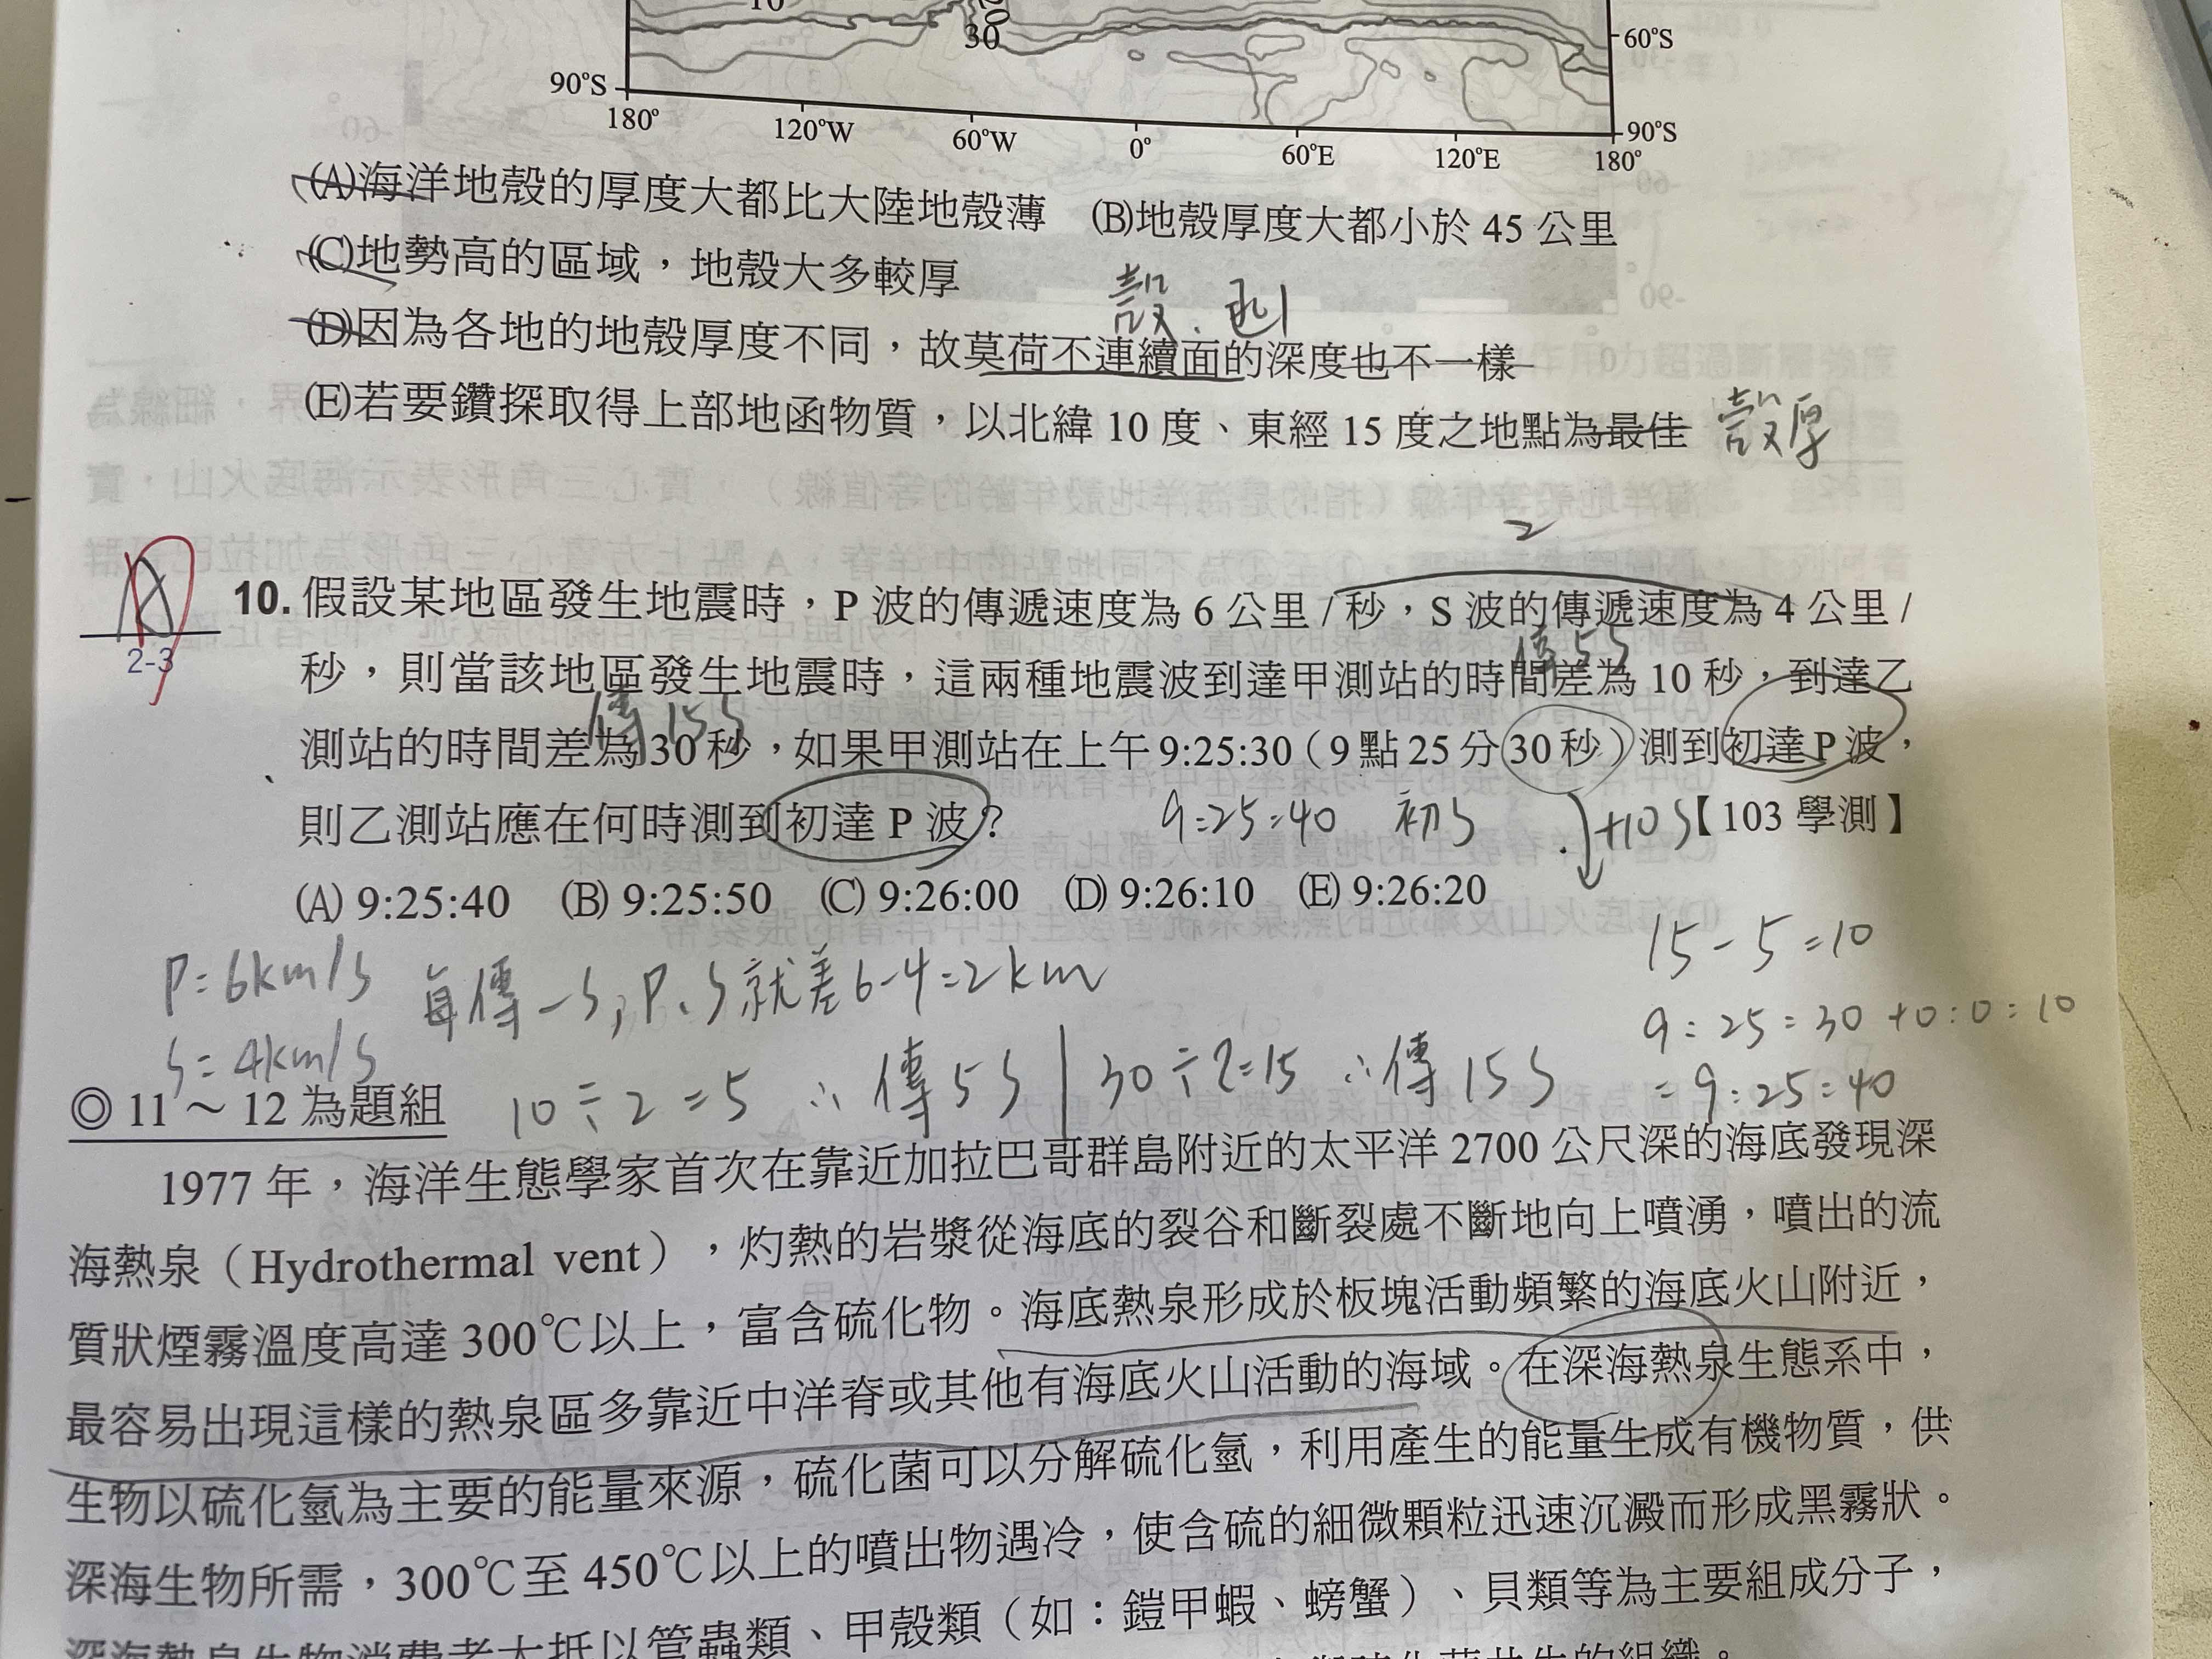 10
20
30
60°S
90°S
90°S
180° 120°W 60°W 0° 60°E 120°E 180°
(A)海洋地殼的厚度大都比大陸地殼薄 (B)地殼厚度大都小於 45 公里
(C)地勢高的區域，地殼大多較厚
殼、函
(D)因為各地的地殼厚度不同，故莫荷不連續面的深度也不一樣
(E)若要鑽探取得上部地函物質，以北緯 10 度、東經 15 度之地點為最佳 殼厚
2
2-3
10. 假設某地區發生地震時，P 波的傳遞速度為 6 公里 / 秒，S 波的傳遞速度為 4 公里 /
傳5S
秒，則當該地區發生地震時，這兩種地震波到達甲測站的時間差為 10 秒，到達乙
傳15S
測站的時間差為 30 秒，如果甲測站在上午 9:25:30（9 點 25 分 30 秒）測到初達 P 波，
則乙測站應在何時測到初達 P 波？ 【103 學測】
9:25:40 初S +10S
(A) 9:25:40 (B) 9:25:50 (C) 9:26:00 (D) 9:26:10 (E) 9:26:20
15-5=10
P=6km/s 每傳一S，P、S就差6-4=2km
9:25:30+0:0:10
S=4km/s
=9:25:40
10÷2=5 ∴傳5S | 30÷2=15 ∴傳15S
◎ 11 ～ 12 為題組
1977 年，海洋生態學家首次在靠近加拉巴哥群島附近的太平洋 2700 公尺深的海底發現深
海熱泉（Hydrothermal vent），灼熱的岩漿從海底的裂谷和斷裂處不斷地向上噴湧，噴出的流
質狀煙霧溫度高達 300℃以上，富含硫化物。海底熱泉形成於板塊活動頻繁的海底火山附近，
最容易出現這樣的熱泉區多靠近中洋脊或其他有海底火山活動的海域。在深海熱泉生態系中，
生物以硫化氫為主要的能量來源，硫化菌可以分解硫化氫，利用產生的能量生成有機物質，供
深海生物所需，300℃至 450℃以上的噴出物遇冷，使含硫的細微顆粒迅速沉澱而形成黑霧狀。
深海熱泉生物消費者大抵以管蟲類、甲殼類（如：鎧甲蝦、螃蟹）、貝類等為主要組成分子，